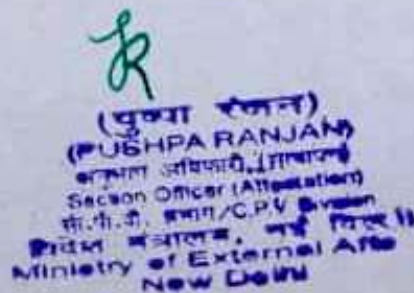 (पुष्पा रंजन)
(PUSHPA RANJAN)
अनुभाग अधिकारी
Section Officer (Attestation)
सी.पी.वी. प्रभाग/C.P.V Division
विदेश मंत्रालय, नई दिल्ली
Ministry of External
New Delhi